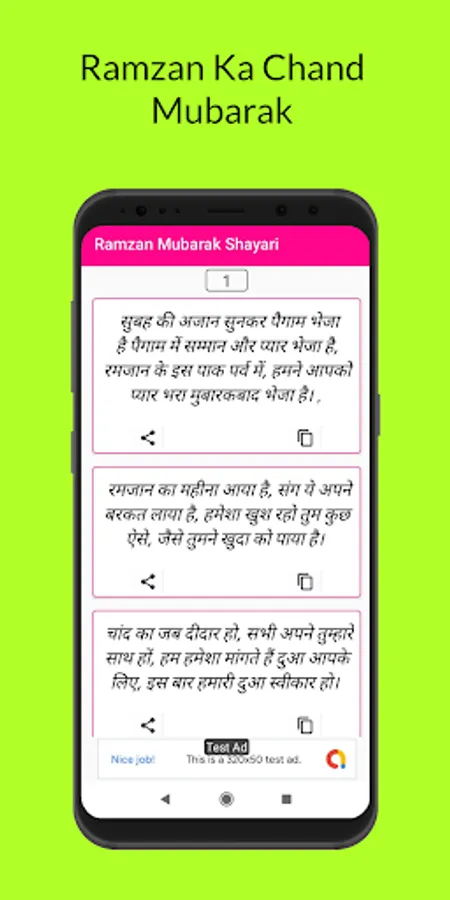 Ramzan Ka Chand
Mubarak
Ramzan Mubarak Shayari
1
सुबह की अजान सुनकर पैगाम भेजा
है पैगाम में सम्मान और प्यार भेजा है,
रमजान के इस पाक पर्व में, हमने आपको
प्यार भरा मुबारकबाद भेजा है। ,
रमजान का महीना आया है, संग ये अपने
बरकत लाया है, हमेशा खुश रहो तुम कुछ
ऐसे, जैसे तुमने खुदा को पाया है।
चांद का जब दीदार हो, सभी अपने तुम्हारे
साथ हों, हम हमेशा मांगते हैं दुआ आपके
लिए, इस बार हमारी दुआ स्वीकार हो।
Test Ad
Nice job! This is a 320x50 test ad.